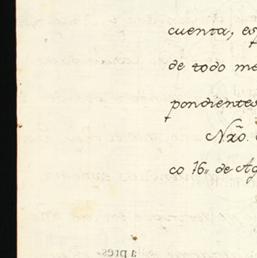 cuenta, es
de todo me
pondientes
Nro.
co 16. de Ag
a pres-